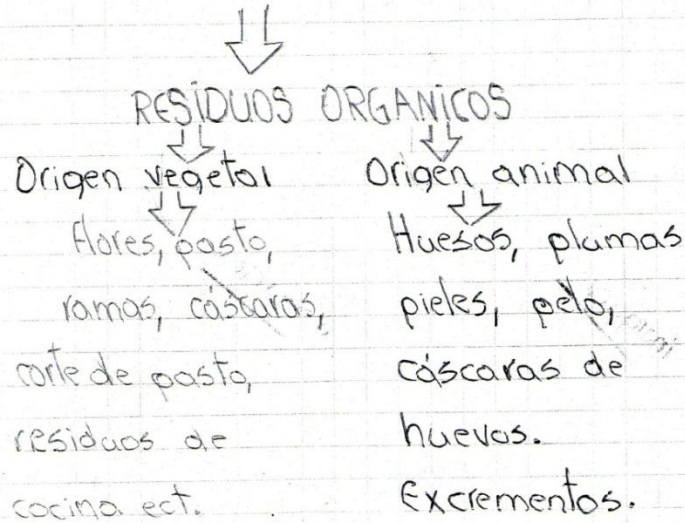 RESIDUOS ORGANICOS
Origen vegetal
flores, pasto,
ramas, cáscaras,
corte de pasto,
residuos de
cocina. ect.
Origen animal
Huesos, plumas
pieles, pelo,
cáscaras de
huevos.
Excrementos.